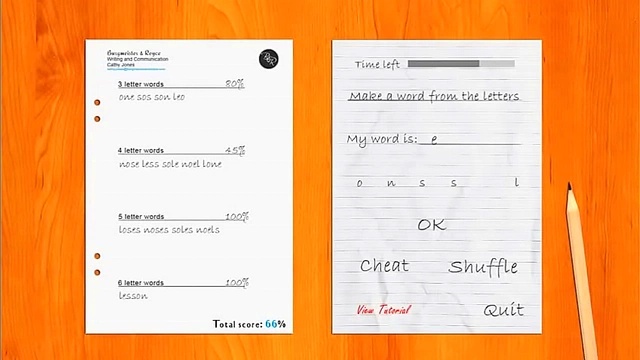 Gurgmeister & Royce
Writing and Communication
Cathy Jones
3 letter words 80%
one sos son leo
4 letter words 45%
nose less sole noel lone
5 letter words 100%
loses noses soles noels
6 letter words 100%
lesson
Total score: 66%
Time left
Make a word from the letters
My word is: e
o n s s l
OK
Cheat Shuffle
View Tutorial Quit